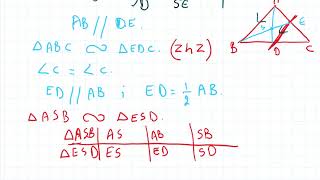 SE
AB // DE.
△ABC ∽ △EDC. (ZhZ)
∠C = ∠C.
ED // AB i ED = 1/2 AB.
△ASB ∽ △ESD.
△ASB | AS | AB | SB
△ESD | ES | ED | SD
B
D
C
E